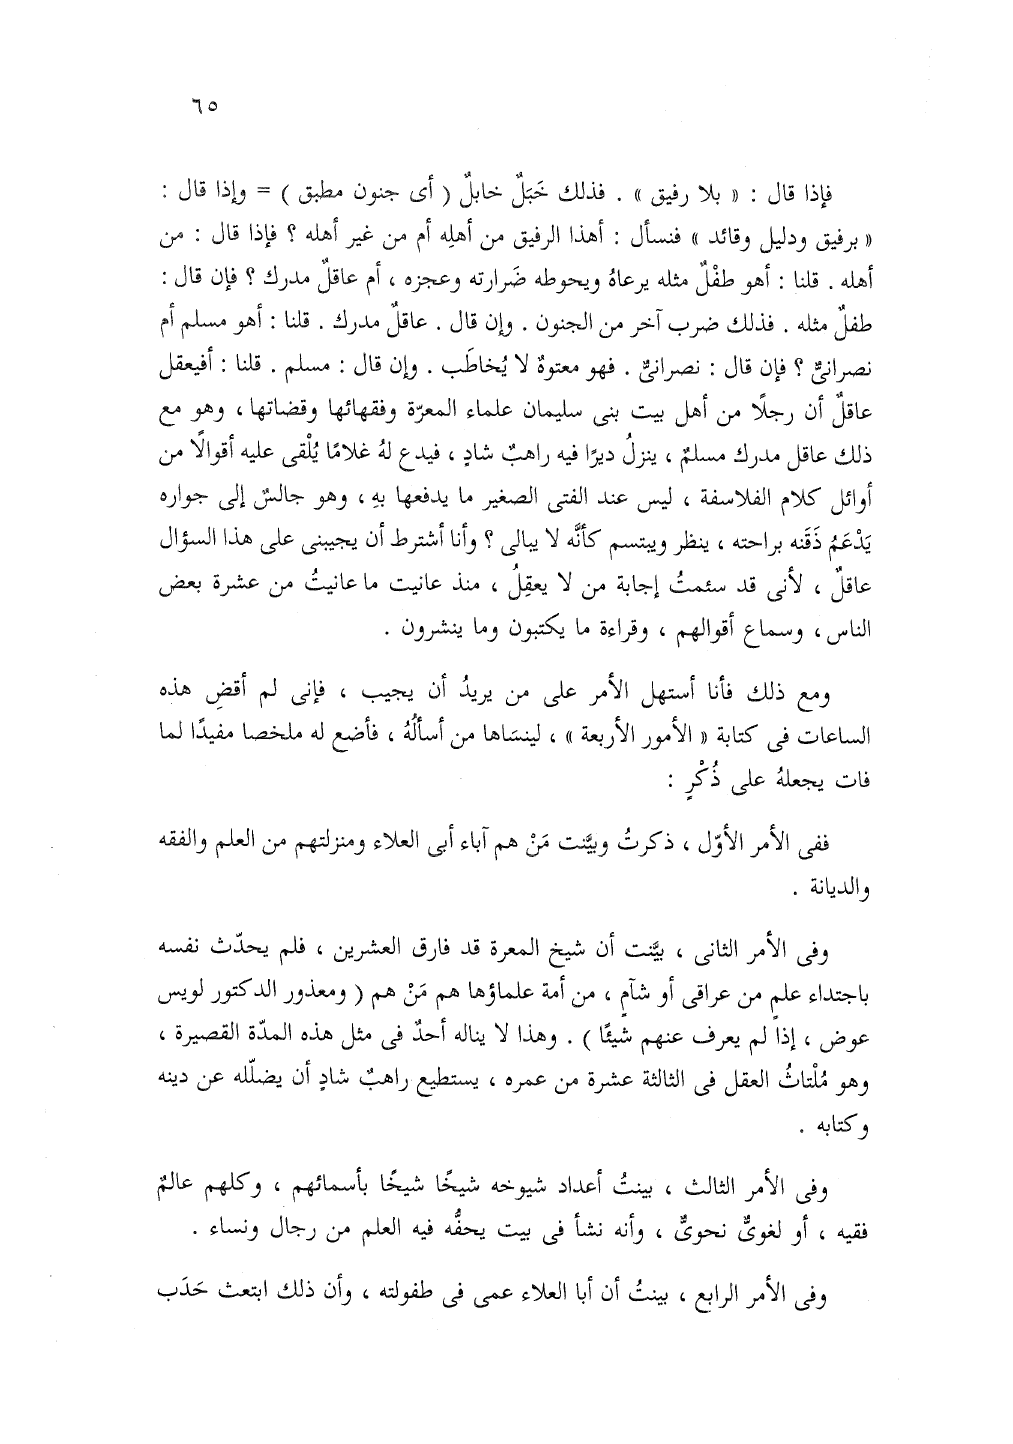 ٦٥
فإذا قال : « بلا رفيق » . فذلك خَبَلٌ خابلٌ ( أى جنون مطبق ) = وإذا قال :
« برفيق ودليل وقائد » فنسأل : أهذا الرفيق من أهلِه أم من غير أهله ؟ فإذا قال : من
أهله . قلنا : أهو طفْلٌ مثله يرعاهُ ويحوطه ضَرارته وعجزه ، أم عاقلٌ مدرك ؟ فإن قال :
طفلٌ مثله . فذلك ضرب آخر من الجنون . وإن قال . عاقلٌ مدرك . قلنا : أهو مسلم أم
نصرانىٌّ ؟ فإن قال : نصرانىٌّ . فهو معتوهٌ لا يُخاطَب . وإن قال : مسلم . قلنا : أفيعقل
عاقلٌ أن رجلًا من أهل بيت بنى سليمان علماء المعرّة وفقهائها وقضاتها ، وهو مع
ذلك عاقل مدرك مسلمٌ ، ينزلُ ديرًا فيه راهبٌ شادٍ ، فيدع لهُ غلامًا يُلْقى عليه أقوالًا من
أوائل كلام الفلاسفة ، ليس عند الفتى الصغير ما يدفعها بهِ ، وهو جالسٌ إلى جواره
يَدْعَمُ ذَقَنه براحته ، ينظر ويبتسم كأنَّه لا يبالى ؟ وأنا أشترط أن يجيبنى على هذا السؤال
عاقلٌ ، لأنى قد سئمتُ إجابة من لا يعقِلُ ، منذ عانيت ما عانيتُ من عشرة بعض
الناس ، وسماع أقوالهم ، وقراءة ما يكتبون وما ينشرون .
ومع ذلك فأنا أستهل الأمر على من يريدُ أن يجيب ، فإنى لم أقضِ هذه
الساعات فى كتابة « الأمور الأربعة » ، لينسَاها من أسألُهُ ، فأضع له ملخصا مفيدًا لما
فات يجعلهُ على ذُكْرٍ :
ففى الأمر الأوّل ، ذكرتُ وبيَّنت مَنْ هم آباء أبى العلاء ومنزلتهم من العلم والفقه
والديانة .
وفى الأمر الثانى ، بيَّنت أن شيخ المعرة قد فارق العشرين ، فلم يحدّث نفسه
باجتداء علمٍ من عراقى أو شآمٍ ، من أمة علماؤها هم مَنْ هم ( ومعذور الدكتور لويس
عوض ، إذا لم يعرف عنهم شيئًا ) . وهذا لا يناله أحدٌ فى مثل هذه المدّة القصيرة ،
وهو مُلْتاثُ العقل فى الثالثة عشرة من عمره ، يستطيع راهبٌ شادٍ أن يضلّله عن دينه
وكتابه .
وفى الأمر الثالث ، بينتُ أعداد شيوخه شيخًا شيخًا بأسمائهم ، وكلهم عالمٌ
فقيه ، أو لغوىٌّ نحوىٌّ ، وأنه نشأ فى بيت يحفُّه فيه العلم من رجال ونساء .
وفى الأمر الرابع ، بينتُ أن أبا العلاء عمى فى طفولته ، وأن ذلك ابتعث حَدَب